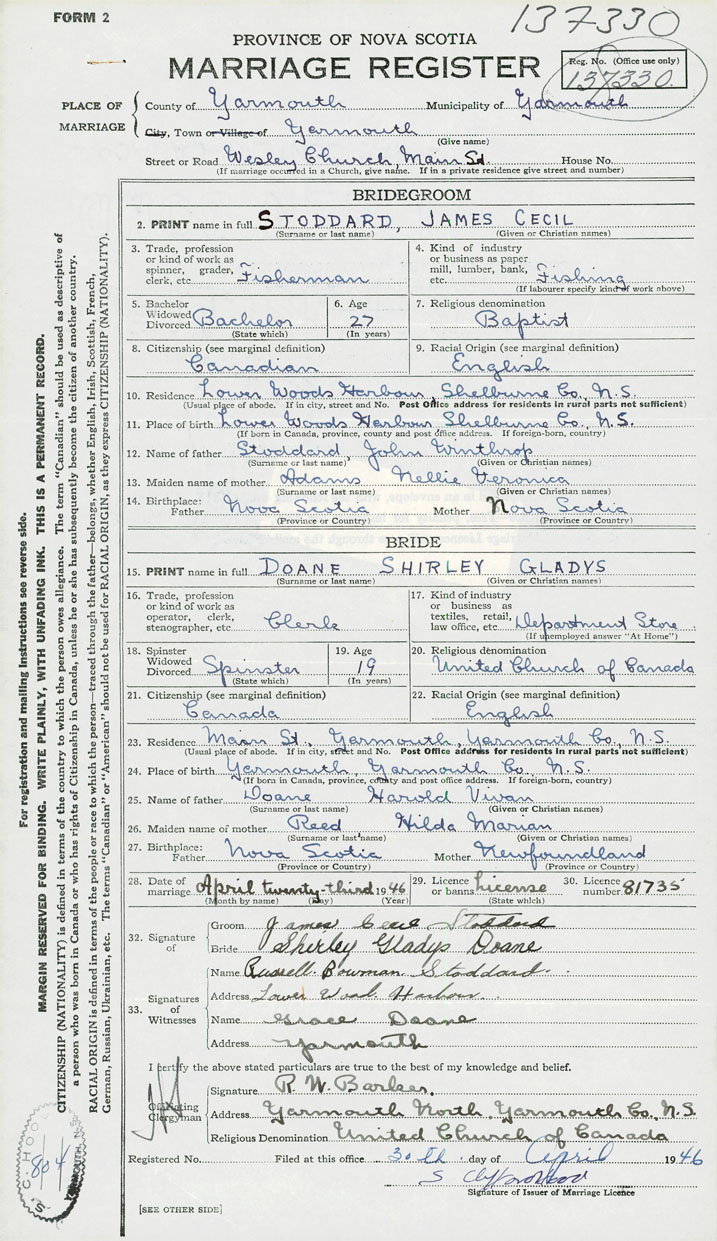 FORM 2
137330
PROVINCE OF NOVA SCOTIA
MARRIAGE REGISTER
Reg. No. (Office use only)
137330
PLACE OF MARRIAGE
County of Yarmouth Municipality of Yarmouth
City, Town or Village of Yarmouth
(Give name)
Street or Road Wesley Church, Main St. House No.
(If marriage occurred in a Church, give name. If in a private residence give street and number)
BRIDEGROOM
2. PRINT name in full STODDARD, JAMES CECIL
(Surname or last name) (Given or Christian names)
3. Trade, profession or kind of work as spinner, grader, clerk, etc. Fisherman
4. Kind of industry or business as paper mill, lumber, bank, etc. Fishing
(If labourer specify kind of work above)
5. Bachelor Widowed Divorced Bachelor
(State which)
6. Age 27
(In years)
7. Religious denomination
Baptist
8. Citizenship (see marginal definition)
Canadian
9. Racial Origin (see marginal definition)
English
10. Residence Lower Woods Harbour, Shelburne Co., N.S.
(Usual place of abode. If in city, street and No. Post Office address for residents in rural parts not sufficient)
11. Place of birth Lower Woods Harbour Shelburne Co., N.S.
(If born in Canada, province, county and post office address. If foreign-born, country)
12. Name of father Stoddard, John Winthrop
(Surname or last name) (Given or Christian names)
13. Maiden name of mother Adams Nellie Veronica
(Surname or last name) (Given or Christian names)
14. Birthplace: Father Nova Scotia Mother Nova Scotia
(Province or Country) (Province or Country)
BRIDE
15. PRINT name in full DOANE SHIRLEY GLADYS
(Surname or last name) (Given or Christian names)
16. Trade, profession or kind of work as operator, clerk, stenographer, etc. Clerk
17. Kind of industry or business as textiles, retail, law office, etc. Department Store
(If unemployed answer "At Home")
18. Spinster Widowed Divorced Spinster
(State which)
19. Age 19
(In years)
20. Religious denomination
United Church of Canada
21. Citizenship (see marginal definition)
Canada
22. Racial Origin (see marginal definition)
English
23. Residence Main St., Yarmouth, Yarmouth Co., N.S.
(Usual place of abode. If in city, street and No. Post Office address for residents in rural parts not sufficient)
24. Place of birth Yarmouth, Yarmouth Co., N.S.
(If born in Canada, province, county and post office address. If foreign-born, country)
25. Name of father Doane Harold Vivan
(Surname or last name) (Given or Christian names)
26. Maiden name of mother Reed Hilda Marian
(Surname or last name) (Given or Christian names)
27. Birthplace: Father Nova Scotia Mother Newfoundland
(Province or Country) (Province or Country)
28. Date of marriage April twenty-third 1946
(Month by name) (Day) (Year)
29. Licence or banns License
(State which)
30. Licence number 81735
32. Signature of
Groom James Cecil Stoddard
Bride Shirley Gladys Doane
33. Signatures of Witnesses
Name Russell Bowman Stoddard
Address Lower Wood Harbour
Name Grace Doane
Address Yarmouth
I certify the above stated particulars are true to the best of my knowledge and belief.
Officiating Clergyman
Signature R. W. Barker.
Address Yarmouth North, Yarmouth Co., N.S.
Religious Denomination United Church of Canada
Registered No. Filed at this office 30th day of April 1946
Signature of Issuer of Marriage Licence
[SEE OTHER SIDE]
For registration and mailing instructions see reverse side.
MARGIN RESERVED FOR BINDING. WRITE PLAINLY, WITH UNFADING INK. THIS IS A PERMANENT RECORD.
CITIZENSHIP (NATIONALITY) is defined in terms of the country to which the person owes allegiance. The term "Canadian" should be used as descriptive of
a person who was born in Canada or who has rights of Citizenship in Canada, unless he or she has subsequently become the citizen of another country.
RACIAL ORIGIN is defined in terms of the people or race to which the person—traced through the father—belongs, whether English, Irish, Scottish, French,
German, Russian, Ukrainian, etc. The terms "Canadian" or "American" should not be used for RACIAL ORIGIN, as they express CITIZENSHIP (NATIONALITY).
804